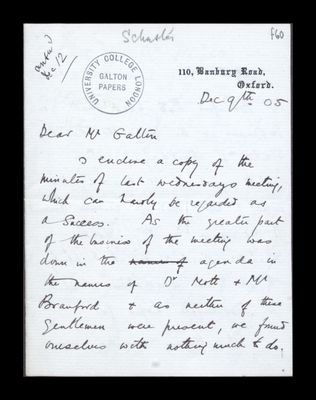 Schuster
f60
answd
Dec 12
UNIVERSITY COLLEGE LONDON
GALTON
PAPERS
110, Banbury Road,
Oxford.
Dec 9th 05
Dear Mr Galton
I enclose a copy of the
minutes of last wednesdays meeting,
which can hardly be regarded as
a success. As the greater part
of the business of the meeting was
down in the names of agenda in
the names of Dr Mott & Mr
Branford & as neither of these
gentlemen were present, we found
ourselves with nothing much to do.